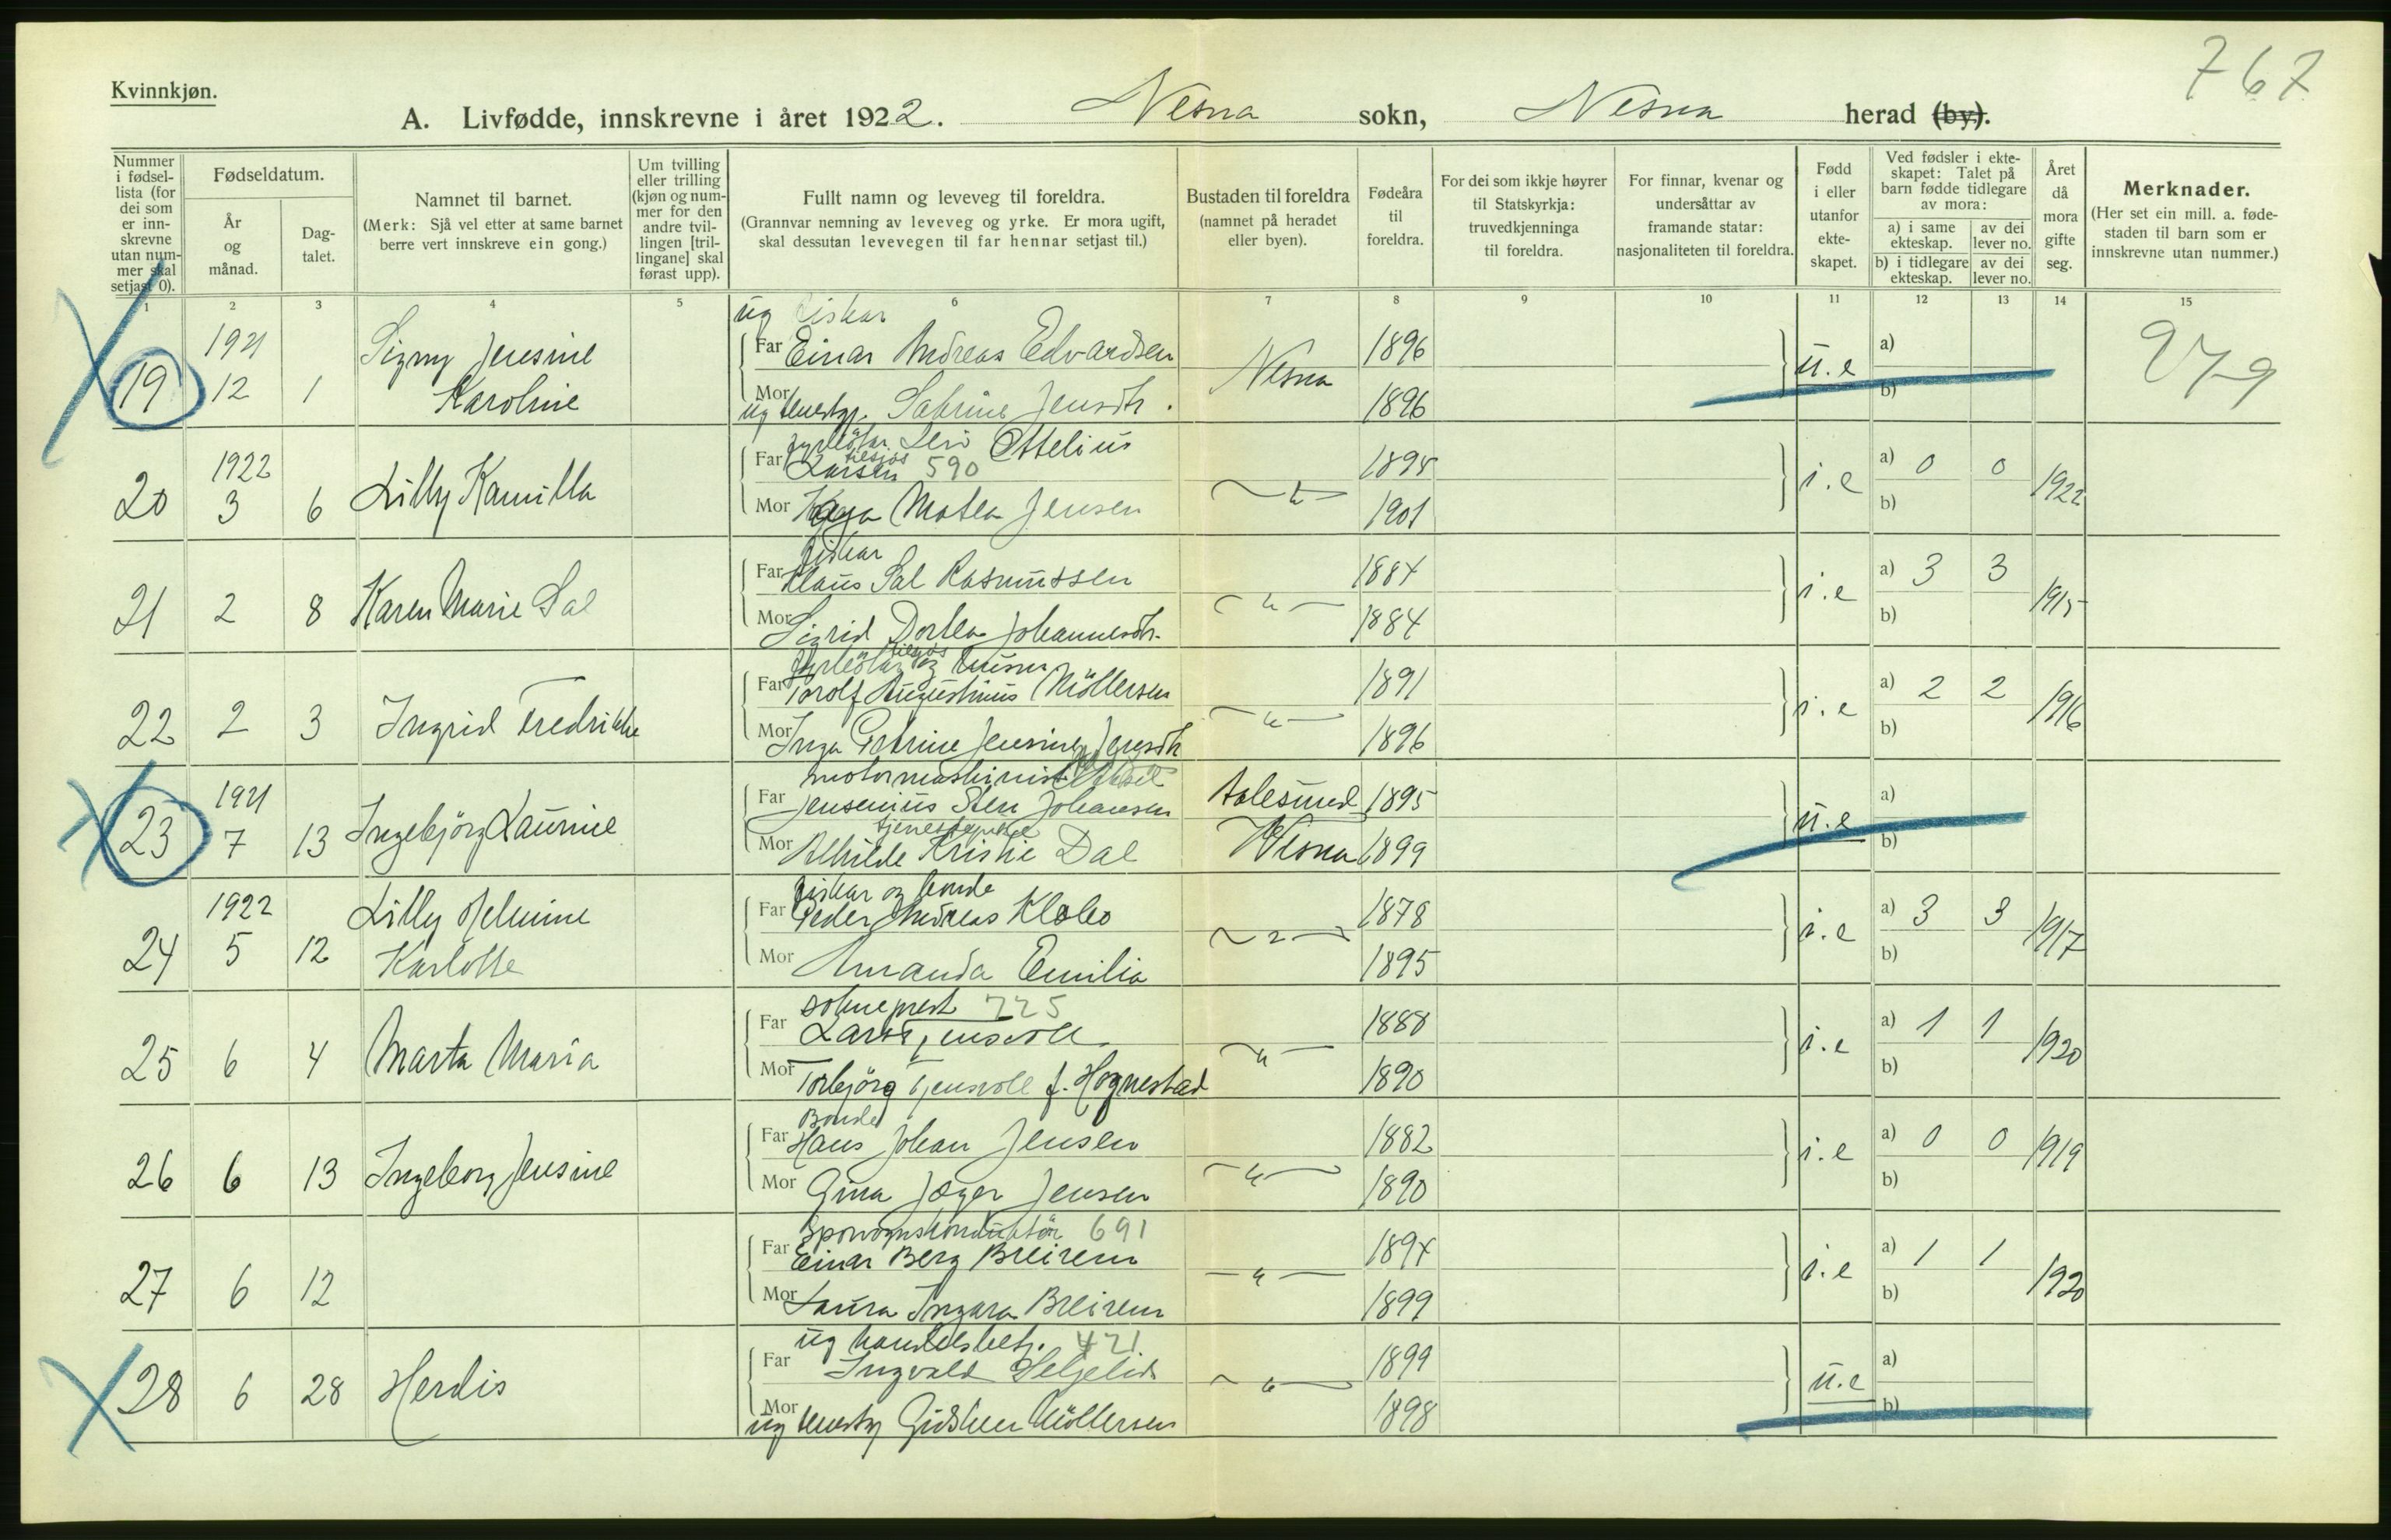 767
Kvinnkjøn.
A. Livfødde, innskrevne i året 1922. Nesna sokn, Nesna herad (by).
Nummer i fødsel-lista (for dei som er inn-skrevne utan num-mer skal setjast 0).
Fødseldatum.
År og månad.
Dag-talet.
Namnet til barnet.
(Merk: Sjå vel etter at same barnet berre vert innskreve ein gong.)
Um tvilling eller trilling (kjøn og num-mer for den andre tvil-lingen [tril-lingane] skal førast upp).
Fullt namn og leveveg til foreldra.
(Grannvar nemning av leveveg og yrke. Er mora ugift, skal dessutan levevegen til far hennar setjast til.)
Bustaden til foreldra
(namnet på heradet eller byen).
Fødeåra til foreldra.
For dei som ikkje høyrer til Statskyrkja: truvedkjenninga til foreldra.
For finnar, kvenar og undersåttar av framande statar: nasjonaliteten til foreldra.
Fødd i eller utanfor ekte-skapet.
Ved fødsler i ekte-skapet: Talet på barn fødde tidlegare av mora:
a) i same ekteskap.
av dei lever no.
b) i tidlegare ekteskap.
av dei lever no.
Året då mora gifte seg.
Merknader.
(Her set ein mill. a. føde-staden til barn som er innskrevne utan nummer.)
1 2 3 4 5 6 7 8 9 10 11 12 13 14 15
ug fiskar
1921 Signy Jensine Far Einar Andreas Edvardsen 1896 a)
19 12 1 Karoline Nesna u.e
Mor ug tenestgj. Sabrine Jensdtr. 1896 b)
Ottelius
1922 Far Larsen 590 1898 a) 0 0
20 3 6 Lilly Kamilla i.e 1922
Mor Kaja Matea Jensen 1901 b)
fiskar
Far Klaus Sal Rasmussen 1884 a) 3 3
21 2 8 Karen Marie Sal i.e 1915
Mor Sigrid Dortea Johannesdtr. 1884 b)
Far Torolf Augustinus Möllersen 1891 a) 2 2
22 2 3 Ingrid Fredrikke i.e 1916
Mor Inga Petrine Jensine Jensdtr 1896 b)
motormaskinist
1921 Far Jensenius Sten Johansen Aalesund 1895 a)
23 7 13 Ingebjörg Laurine u.e
Mor Alhilde Kristie Dal Nesna 1899 b)
fiskar og bonde
1922 Lilly Helmine Far Peder Andreas Klobo 1878 a) 3 3
24 5 12 Karlotte i.e 1917
Mor Amanda Emilia 1895 b)
sokneprest 225
Far Lars Tjensvoll 1888 a) 1 1
25 6 4 Marta Maria i.e 1920
Mor Torbjörg Tjensvoll f. Hognestad 1890 b)
Bonde
Far Hans Johan Jensen 1882 a) 0 0
26 6 13 Ingeborg Jensine i.e 1919
Mor Gina Jæger Jensen 1890 b)
Sporvognskonduktör 691
Far Einar Berg Breirem 1894 a) 1 1
27 6 12 i.e 1920
Mor Laura Ingara Breirem 1899 b)
ug handelsbetj. 421
Far Ingvald Seljelid 1899 a)
28 6 28 Herdis u.e
Mor ug tenestgj Gudrun Möllersen 1898 b)